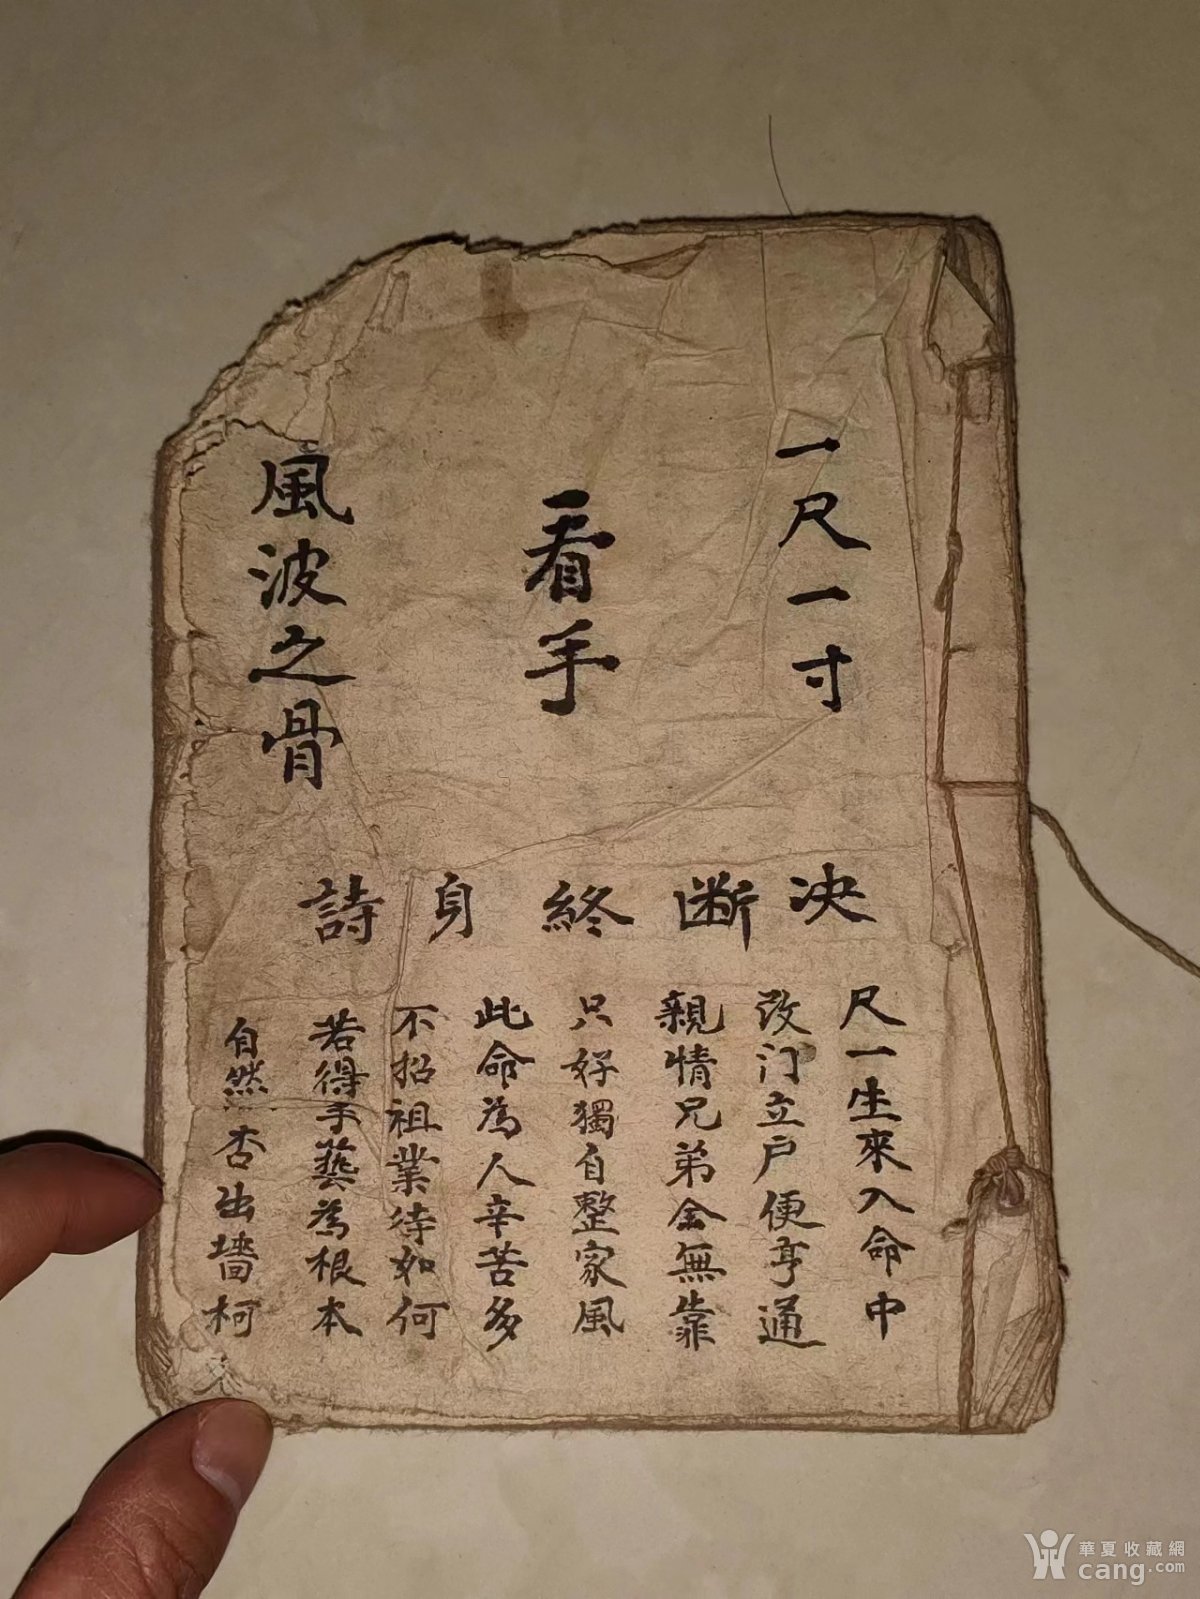 一尺一寸
看手
風波之骨
決断終身詩
尺一生來入命中
改门立户便亨通
親情兄弟全無靠
只好獨自整家風
此命為人辛苦多
不招祖業待如何
若得手藝為根本
自然杏出墻柯
華夏收藏網
cang.com